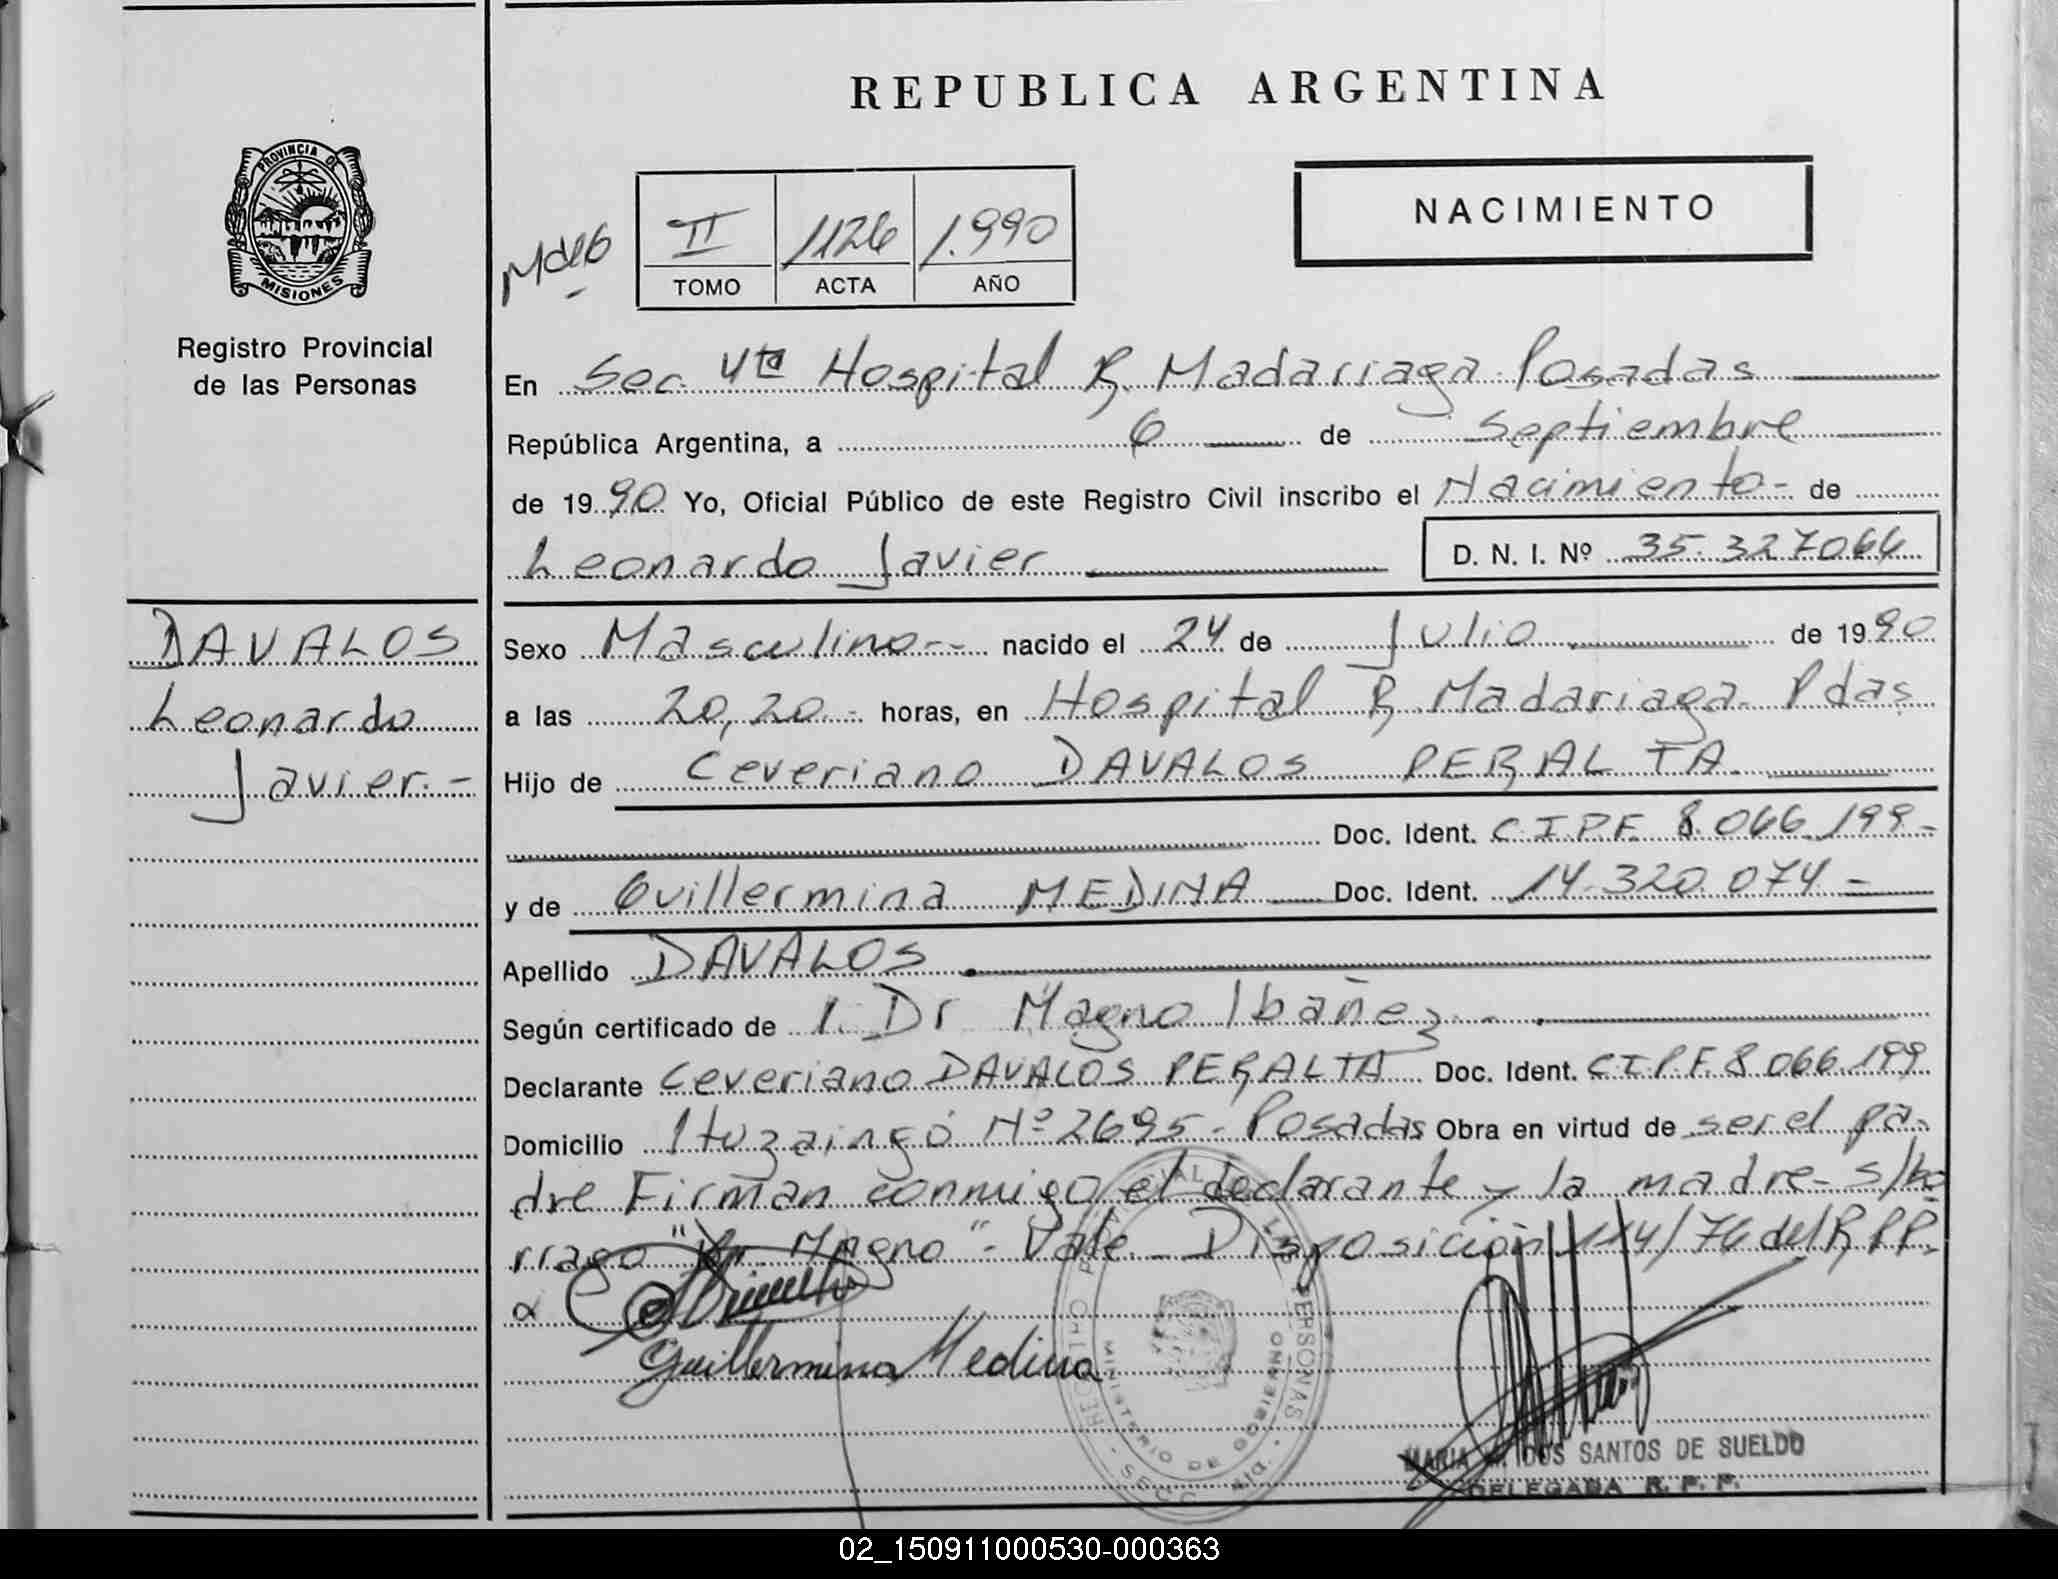 REPUBLICA ARGENTINA
PROVINCIA DE
MISIONES
Registro Provincial
de las Personas
II 1126 1.990
TOMO ACTA AÑO
NACIMIENTO
En Sec. 4ta Hospital R. Madariaga Posadas
República Argentina, a 6 de Septiembre
de 1990 Yo, Oficial Público de este Registro Civil inscribo el Nacimiento- de
Leonardo Javier D. N. I. Nº 35.327066
DAVALOS
Leonardo
Javier.-
Sexo Masculino-- nacido el 24 de Julio de 1990
a las 20,20.- horas, en Hospital R. Madariaga- Pdas
Hijo de Ceveriano DAVALOS PERALTA
Doc. Ident. C.I.P.F. 8.066.199-
y de Guillermina MEDINA Doc. Ident. 14.320.074-
Apellido DAVALOS
Según certificado de 1. Dr Magno Ibañez-
Declarante Ceveriano DAVALOS PERALTA Doc. Ident. C.I.P.F. 8.066.199
Domicilio Ituzaingó Nº 2695- Posadas Obra en virtud de ser el pa-
dre Firman conmigo el declarante y la madre- s/bo
rrago "Dr. Magno"- Vale- Disposición 114/76 del R.P.P.
Guillermina Medina
REGISTRO PROVINCIAL DE LAS PERSONAS
MINISTERIO DE GOBIERNO
MARIA M. DOS SANTOS DE SUELDO
DELEGADA R. P. P.
02_150911000530-000363